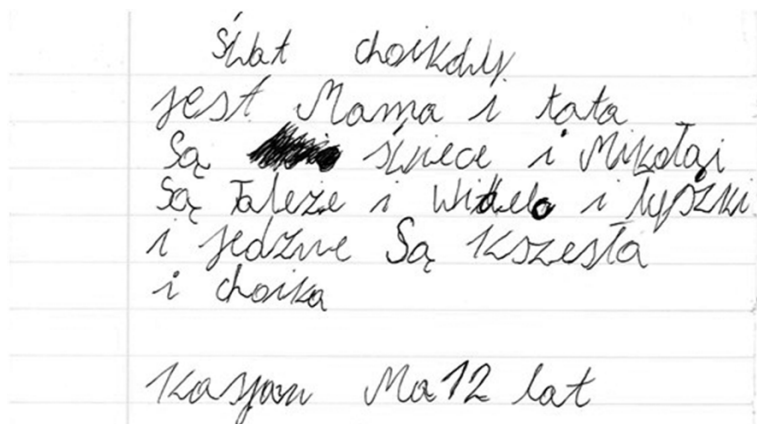 śwat choikdwy.
jest Mama i tata
Są świece i Mikołaj
Są Tależe i Widelo i łyszki
i jedzne Są kszesła
i choika
Kasjan Ma 12 lat